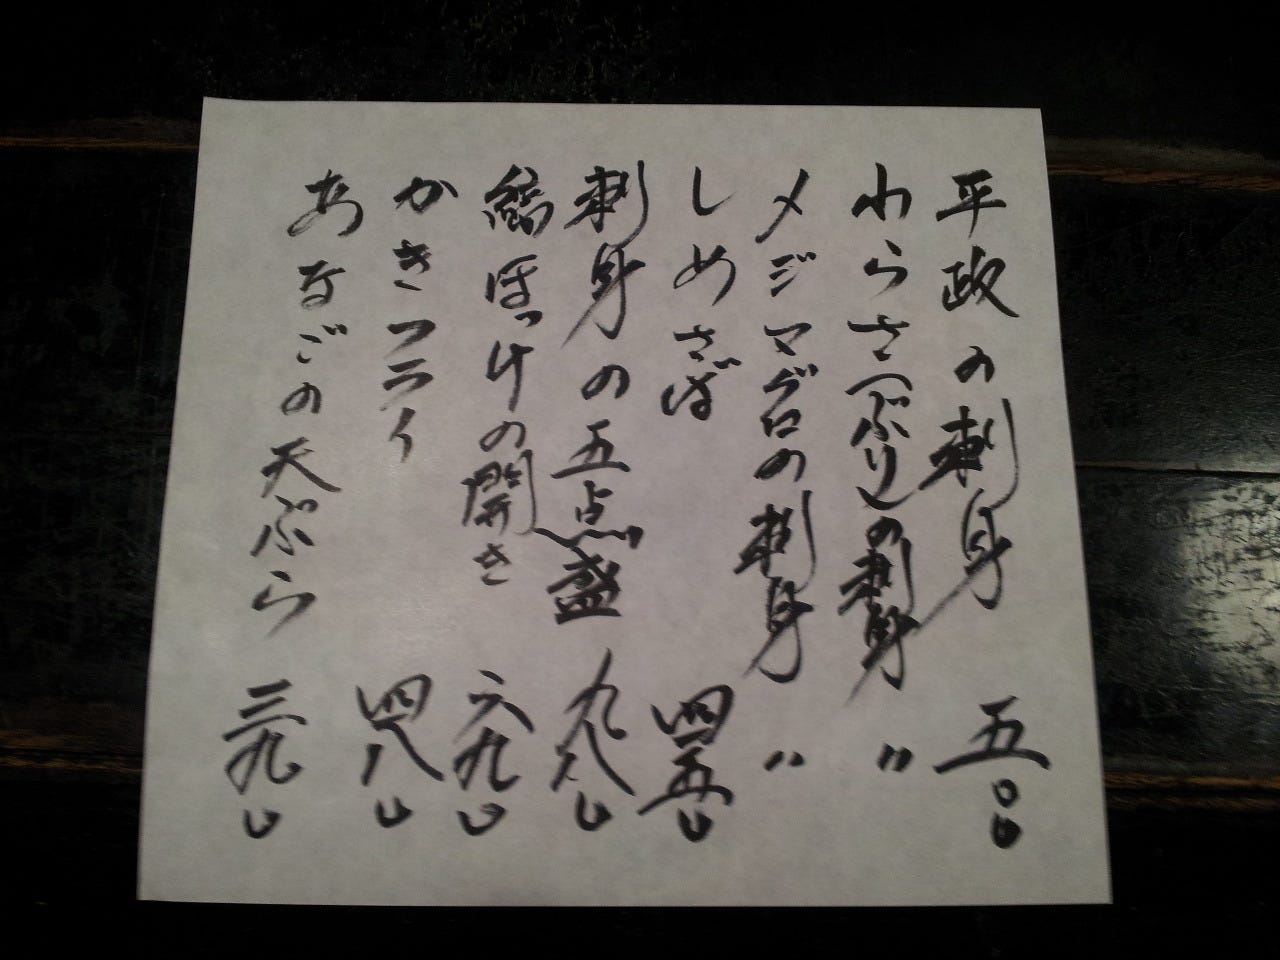 平政の刺身 五〇〇
わらさ(ぶり)の刺身 〃
メジマグロの刺身 〃
しめさば 四五〇
刺身の五点盛 九八〇
縞ほっけの開き 六九〇
かきフライ 四八〇
あなごの天ぷら 三九〇